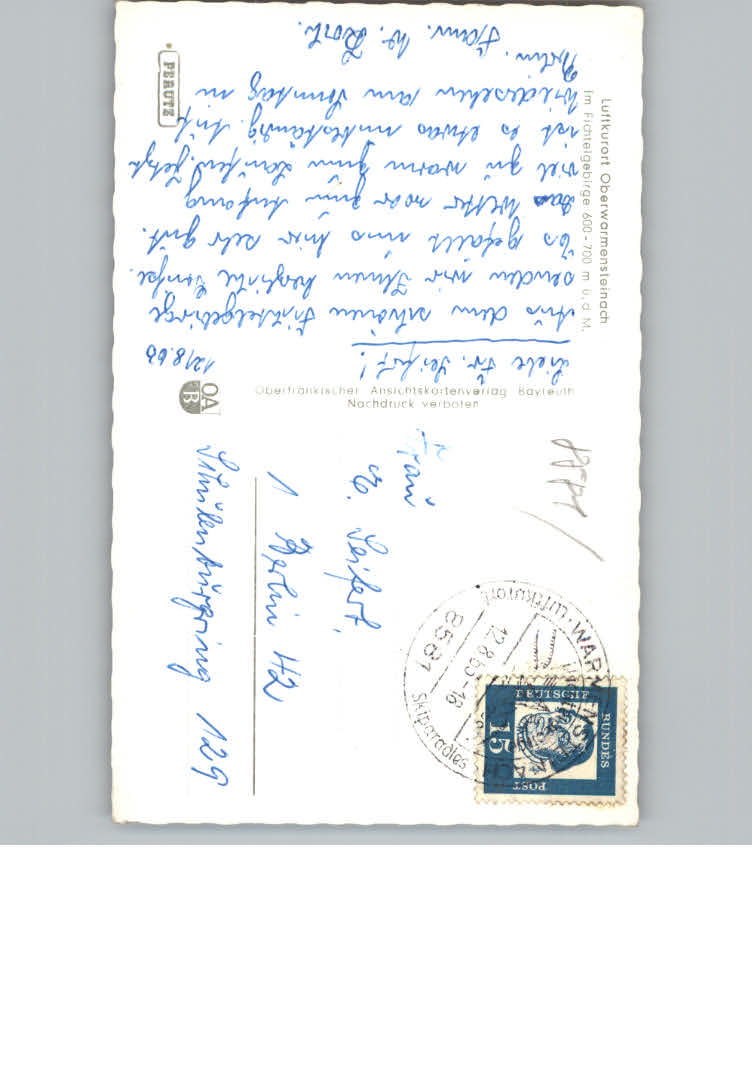 Luftkurort Oberwarmensteinach
im Fichtelgebirge 600-700 m ü. d. M.
12/8.65
Liebe Fr. Seifert!
Aus dem schönen Fichtelgebirge
senden wir Ihnen herzliche Grüße.
Es gefällt uns hier sehr gut.
Das Wetter war zum Anfang
viel zu warm zum Laufen. Jetzt
ist es etwas unbeständig. Auf
Wiedersehen am Sonntag in
Fam. W.
PERUTZ
Oberfränkischer Ansichtskartenverlag Bayreuth
Nachdruck verboten
OA
B
Frau
E. Seifert
1 Berlin 42
Schulenburgring 129
8581
12.8.65-18
Luftkurort
Skiparadies
DEUTSCHE
BUNDES
POST
15